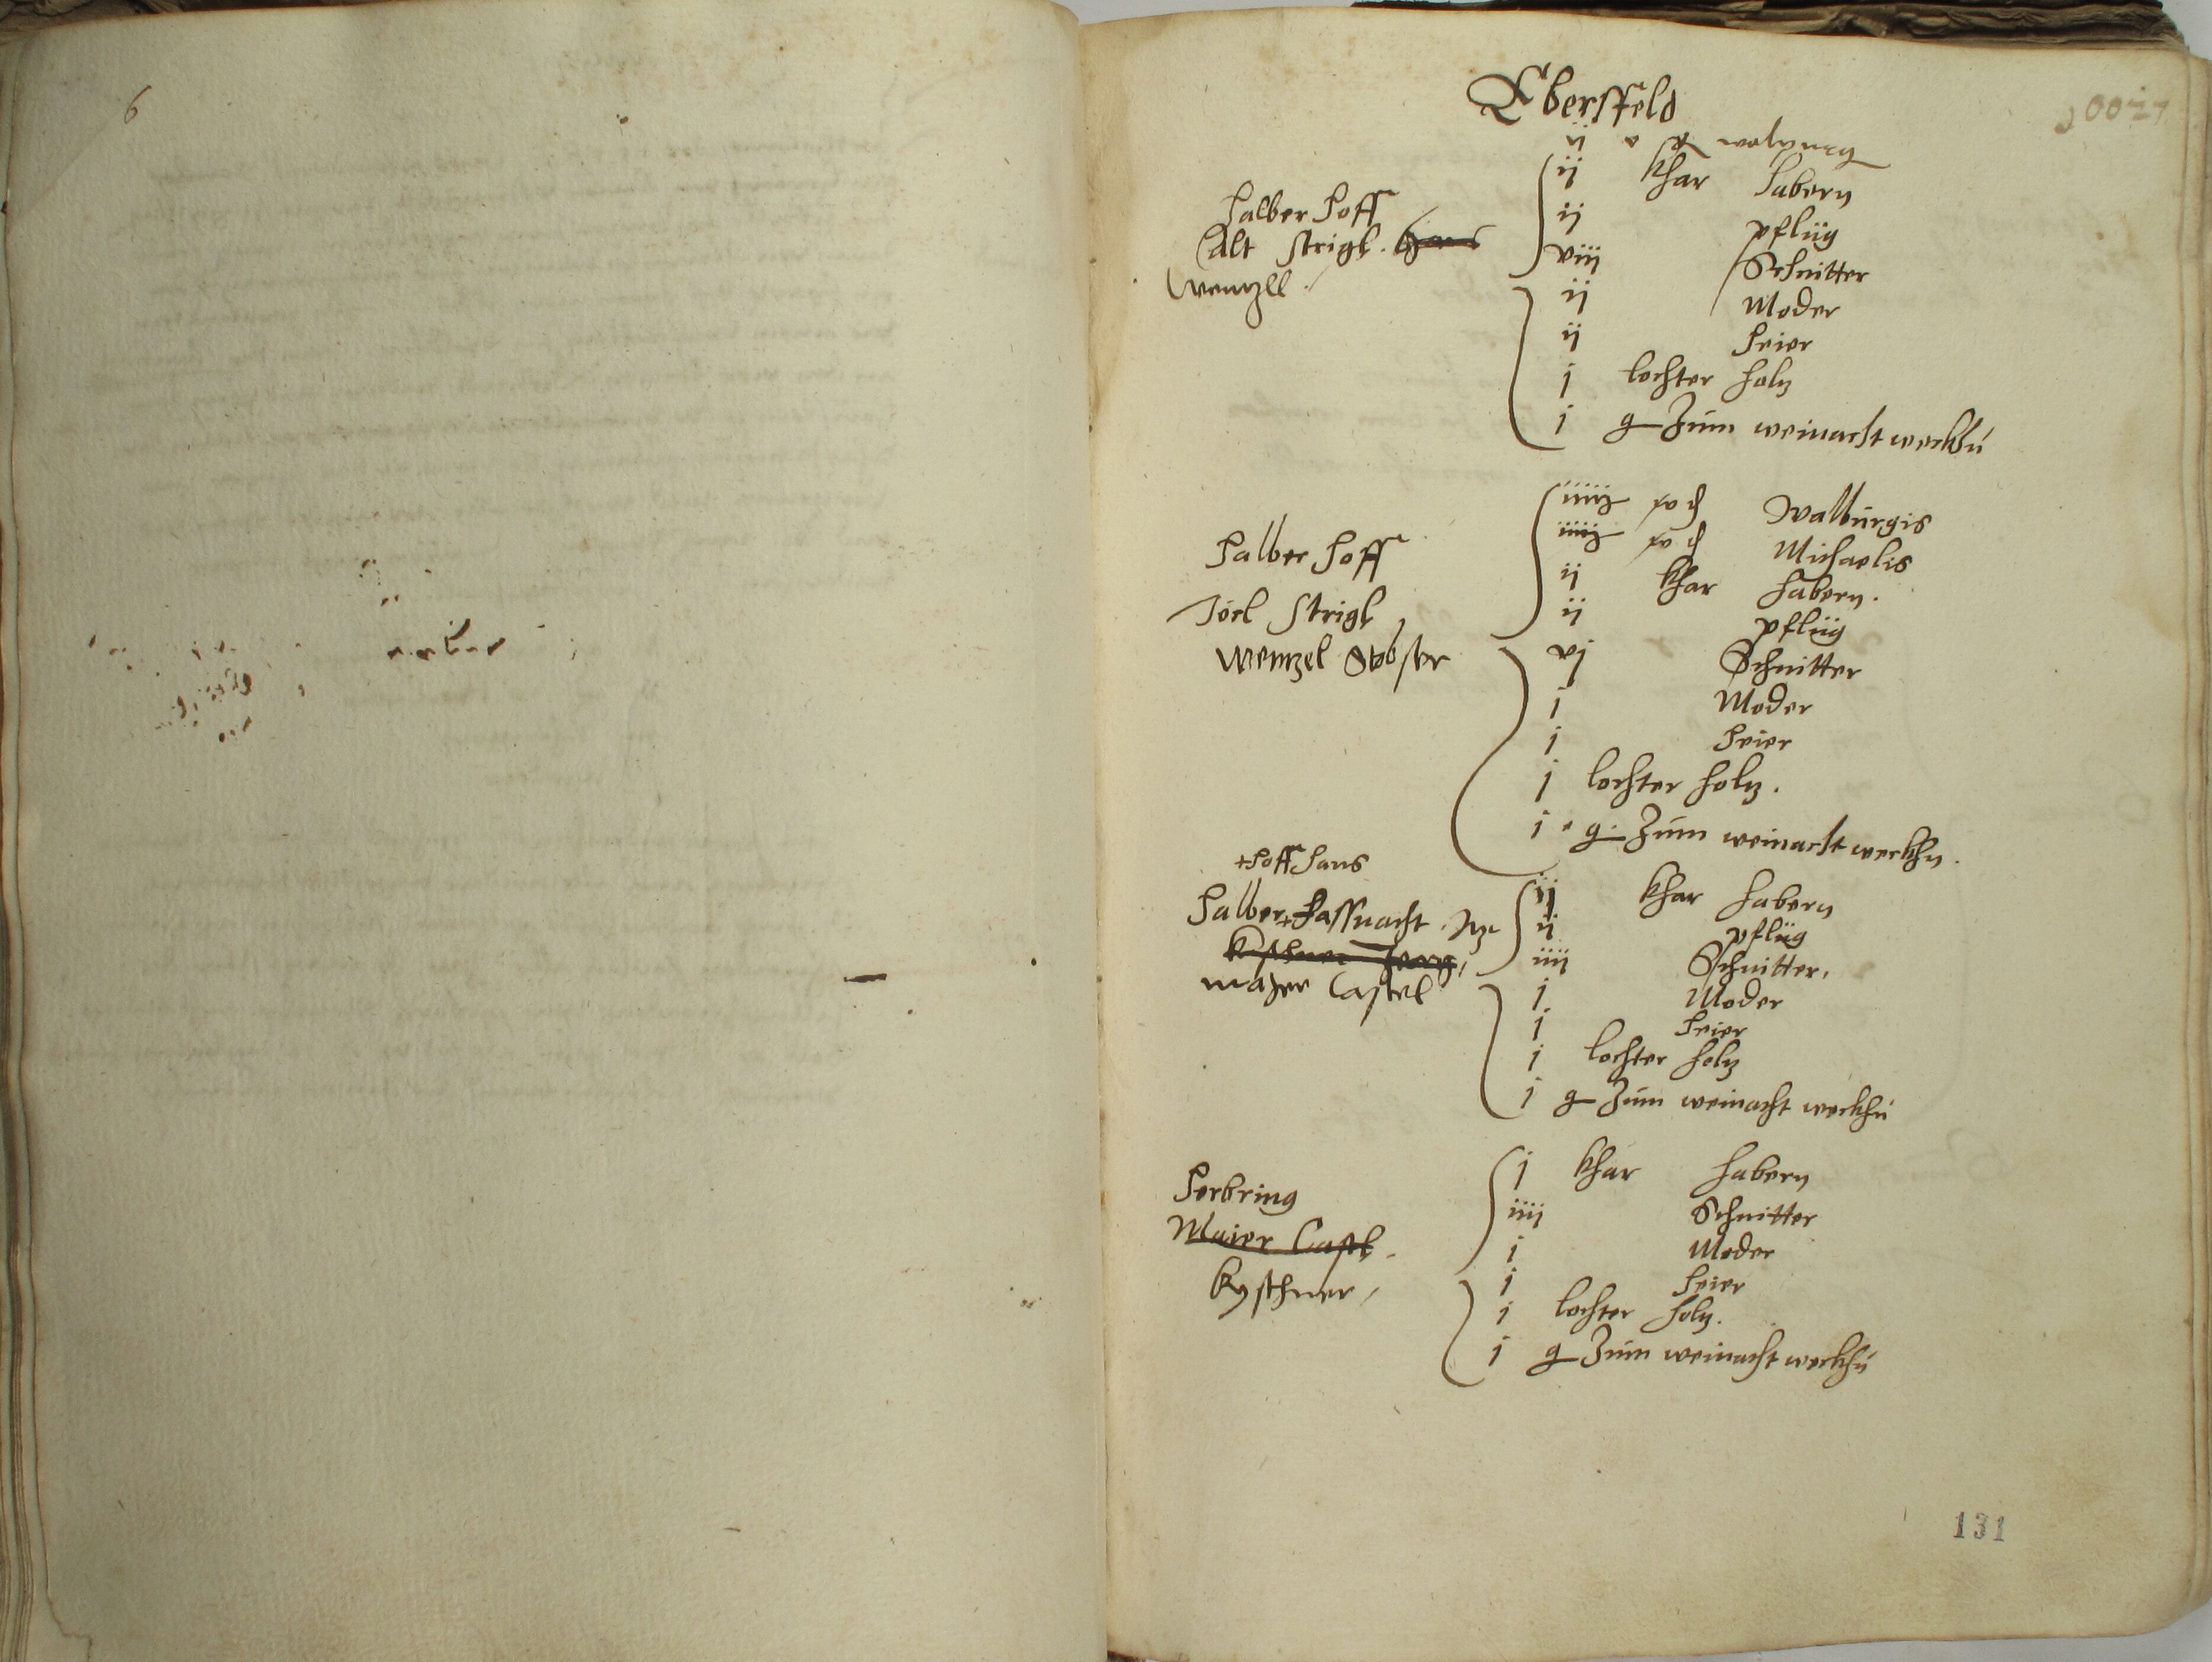 6
Ebersfeld
ij walpurg
Halber Hoff
Alt Strigl. Hans
Wenzell.
ij khar Habern
ij pflüg
viij Schnitter
ij Moder
ij Heier
j lochter holtz
j g Zum weinacht weckhn
Halber Hoff
Jörl Strigl,
Wenzel
iiiij Walburgis
iiiij Michaelis
ij khar habern.
ij pflüg
vj Schnitter
j Moder
j Heier
j lochter holtz.
j g. Zum weinacht weckhn.
+Hoff Hans
Halber+Fassnacht.
majer Castel
ij khar habern
ij pflüg
iiij Schnitter.
j Moder
j Heier
j lochter holtz
j g Zum weinacht weckhn
Herbring
Maier Castl.
Kysthner,
j khar habern
iiij Schnitter
j Moder
j Heier
j lochter holtz.
j g Zum weinacht weckhn
131